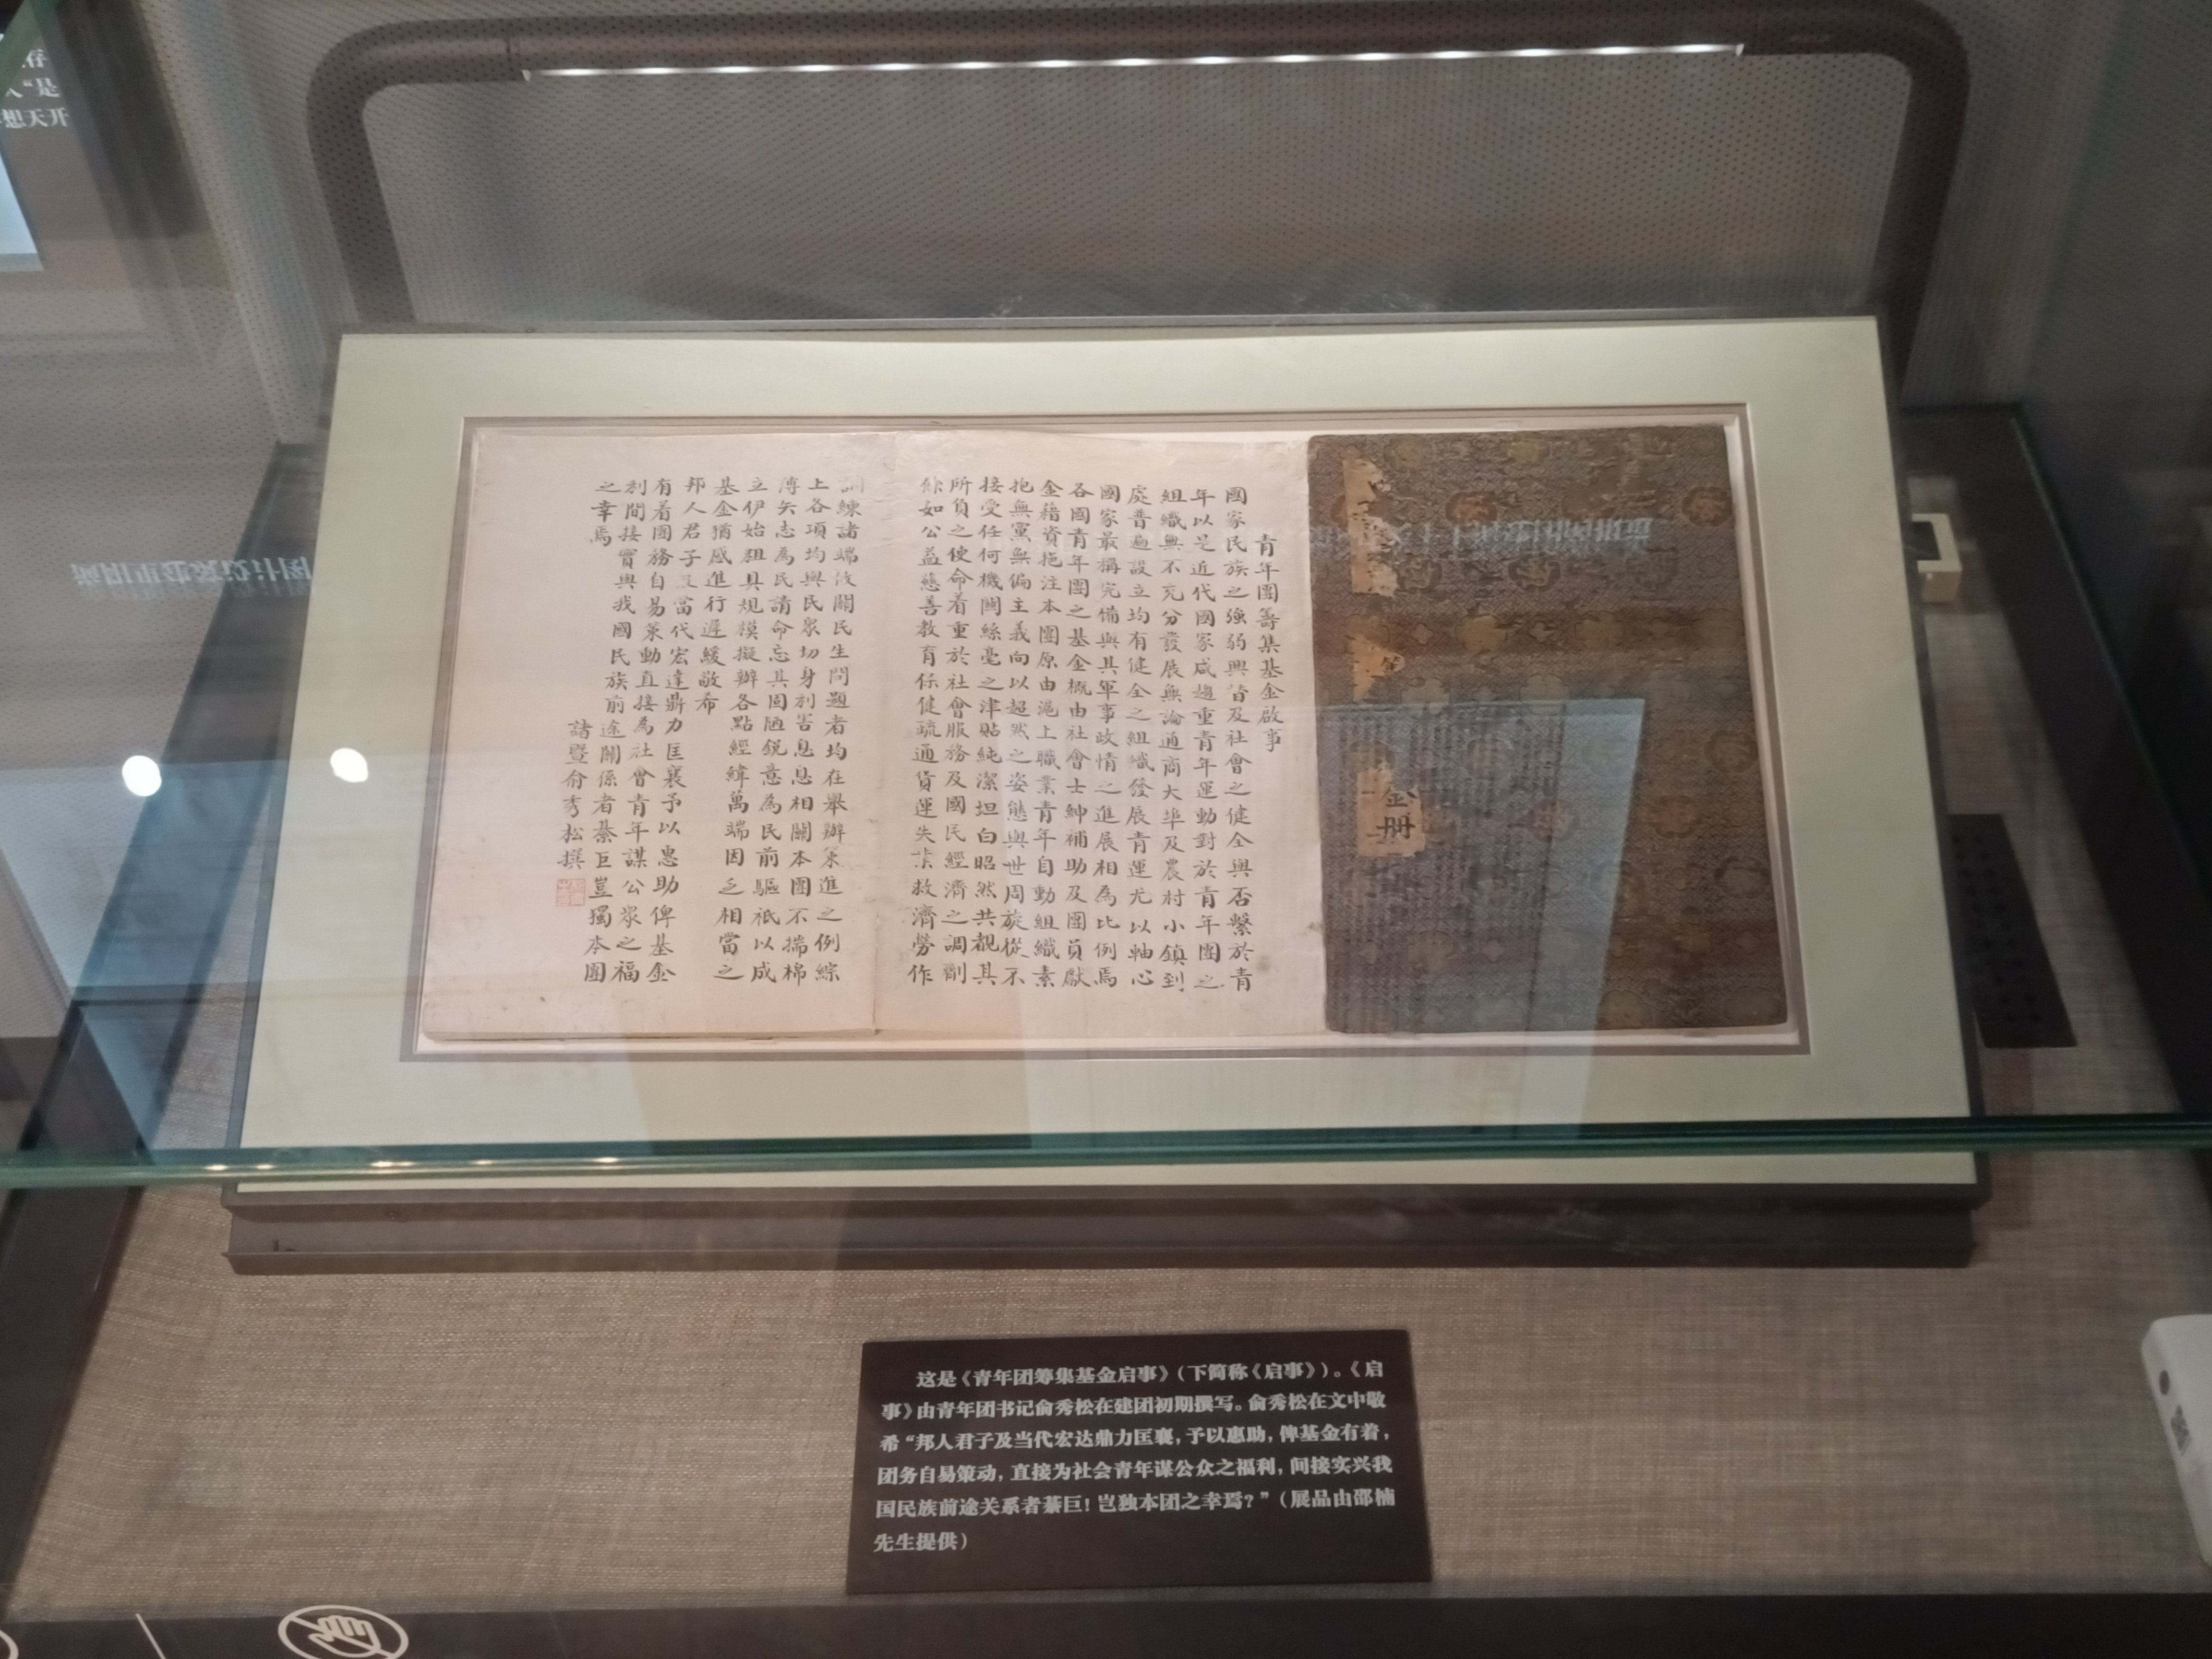 存
人“是
想天开
青年團籌集基金啟事
國家民族之強弱興皆及社會之健全與否繫於青
年以是近代國家咸趨重青年運動對於青年團之
組織無不充分發展無論通商大埠及農村小鎮到
處普遍設立均有健全之組織發展青運尤以軸心
國家最稱完備與其軍事政情之進展相為比例焉
各國青年團之基金概由社會士紳補助及團員獻
金藉資挹注本團原由滬上職業青年自動組織素
抱無黨無偏主義向以超然之姿態與世周旋從不
接受任何機關絲毫之津貼純潔坦白昭然共覩其
所負之使命着重於社會服務及國民經濟之調劑
餘如公益慈善教育保健疏通貨運失業救濟勞作
訓練諸端攸關民生問題者均在舉辦策進之例綜
上各項均與民眾切身利害息息相關本團不揣棉
薄矢志為民請命忘其固陋銳意為民前驅祇以成
立伊始粗具規模擬辦各點經緯萬端因乏相當之
基金猶感進行遲緩敬希
邦人君子及當代宏達鼎力匡襄予以惠助俾基金
有着團務自易策動直接為社會青年謀公眾之福
利間接實興我國民族前途關係者綦巨豈獨本團
之幸焉
諸暨俞秀松撰
金册
这是《青年团筹集基金启事》（下简称《启事》）。《启
事》由青年团书记俞秀松在建团初期撰写。俞秀松在文中敬
希“邦人君子及当代宏达鼎力匡襄，予以惠助，俾基金有着，
团务自易策动，直接为社会青年谋公众之福利，间接实兴我
国民族前途关系者綦巨！岂独本团之幸焉？”（展品由邵楠
先生提供）